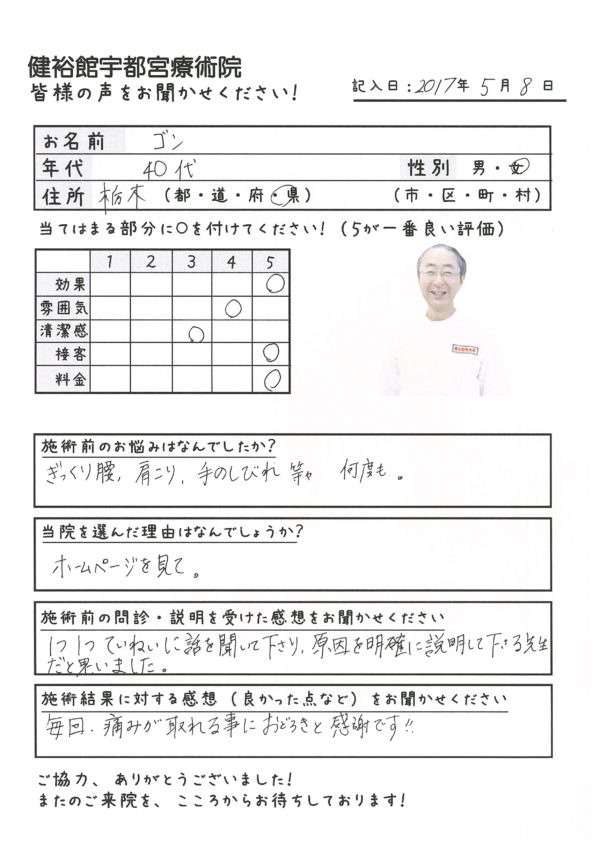 健裕館宇都宮療術院
皆様の声をお聞かせください!
記入日:2017年 5月 8日
お名前 ゴン
年代 40代 性別 男・女
住所 栃木 (都・道・府・県) (市・区・町・村)
当てはまる部分に○を付けてください!(5が一番良い評価)
1 2 3 4 5
効果
雰囲気
清潔感
接客
料金
施術前のお悩みはなんでしたか?
ぎっくり腰, 肩こり, 手のしびれ 等々 何度も。
当院を選んだ理由はなんでしょうか?
ホームページを見て。
施術前の問診・説明を受けた感想をお聞かせください
1つ1つていねいに話を聞いて下さり, 原因を明確に説明して下さる先生
だと思いました。
施術結果に対する感想(良かった点など)をお聞かせください
毎回、痛みが取れる事におどろきと感謝です!!
ご協力、ありがとうございました!
またのご来院を、こころからお待ちしております!